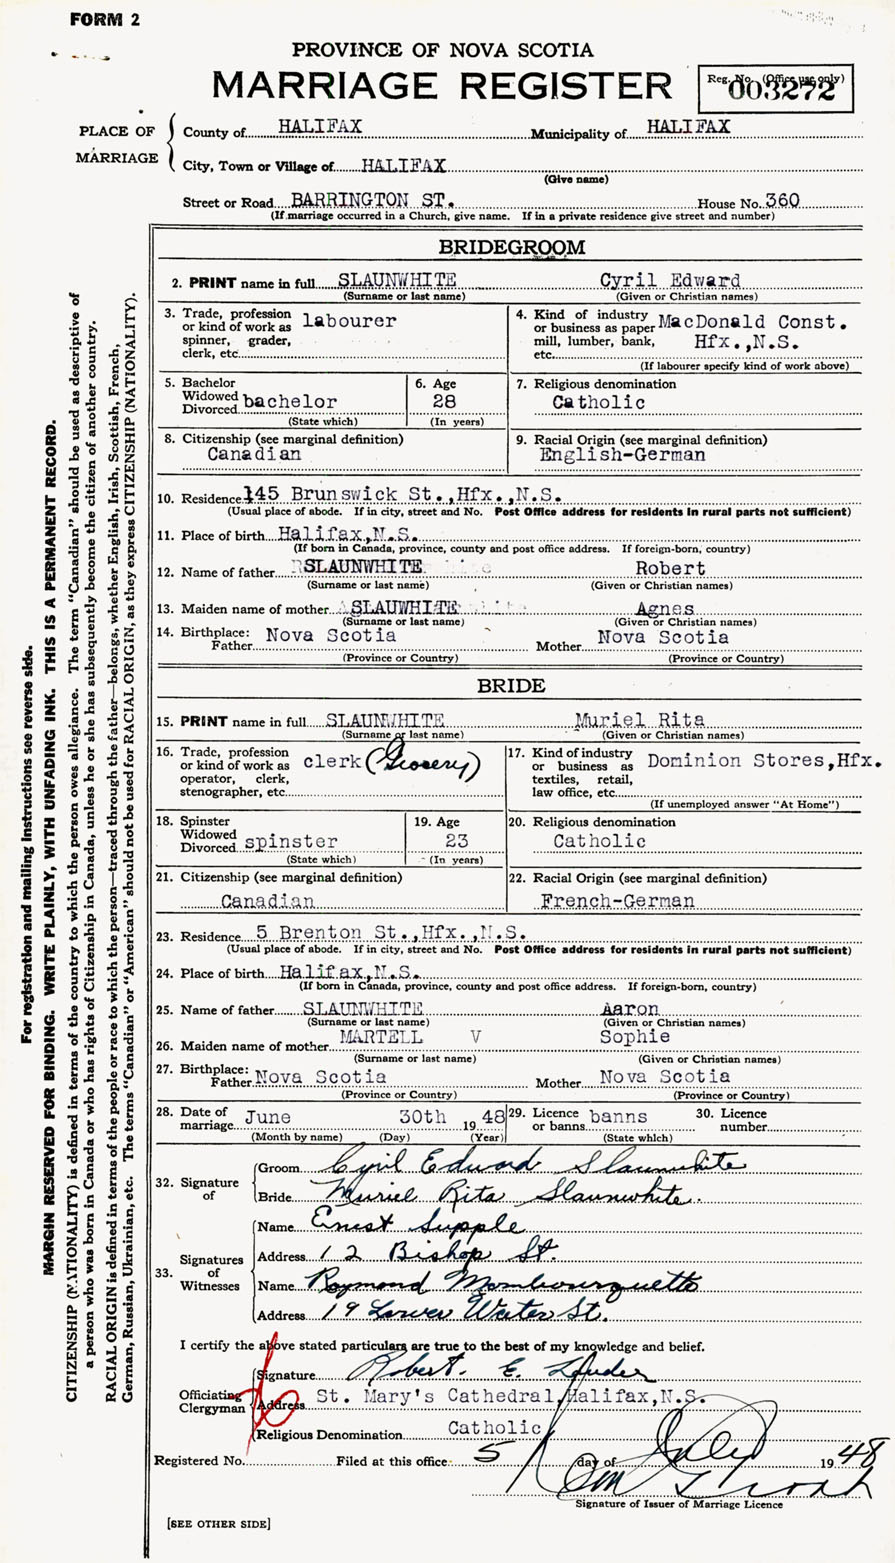 FORM 2
PROVINCE OF NOVA SCOTIA
MARRIAGE REGISTER
Reg. No. (Office use only)
003272
PLACE OF MARRIAGE
County of HALIFAX Municipality of HALIFAX
City, Town or Village of HALIFAX
(Give name)
Street or Road BARRINGTON ST. House No. 360
(If marriage occurred in a Church, give name. If in a private residence give street and number)
BRIDEGROOM
2. PRINT name in full SLAUNWHITE Cyril Edward
(Surname or last name) (Given or Christian names)
3. Trade, profession or kind of work as spinner, grader, clerk, etc. labourer
4. Kind of industry or business as paper mill, lumber, bank, etc. MacDonald Const. Hfx.,N.S.
(If labourer specify kind of work above)
5. Bachelor Widowed Divorced bachelor
(State which)
6. Age 28
(In years)
7. Religious denomination
Catholic
8. Citizenship (see marginal definition)
Canadian
9. Racial Origin (see marginal definition)
English-German
10. Residence 145 Brunswick St.,Hfx.,N.S.
(Usual place of abode. If in city, street and No. Post Office address for residents in rural parts not sufficient)
11. Place of birth Halifax,N.S.
(If born in Canada, province, county and post office address. If foreign-born, country)
12. Name of father SLAUNWHITE Robert
(Surname or last name) (Given or Christian names)
13. Maiden name of mother SLAUWHITE Agnes
(Surname or last name) (Given or Christian names)
14. Birthplace: Father Nova Scotia Mother Nova Scotia
(Province or Country) (Province or Country)
BRIDE
15. PRINT name in full SLAUNWHITE Muriel Rita
(Surname or last name) (Given or Christian names)
16. Trade, profession or kind of work as operator, clerk, stenographer, etc. clerk (Grocery)
17. Kind of industry or business as textiles, retail, law office, etc. Dominion Stores,Hfx.
(If unemployed answer "At Home")
18. Spinster Widowed Divorced spinster
(State which)
19. Age 23
(In years)
20. Religious denomination
Catholic
21. Citizenship (see marginal definition)
Canadian
22. Racial Origin (see marginal definition)
French-German
23. Residence 5 Brenton St.,Hfx.,N.S.
(Usual place of abode. If in city, street and No. Post Office address for residents in rural parts not sufficient)
24. Place of birth Halifax,N.S.
(If born in Canada, province, county and post office address. If foreign-born, country)
25. Name of father SLAUNWHITE Aaron
(Surname or last name) (Given or Christian names)
26. Maiden name of mother MARTELL V Sophie
(Surname or last name) (Given or Christian names)
27. Birthplace: Father Nova Scotia Mother Nova Scotia
(Province or Country) (Province or Country)
28. Date of marriage June 30th 1948 29. Licence or banns banns 30. Licence number
(Month by name) (Day) (Year) (State which)
32. Signature of
Groom Cyril Edward Slaunwhite
Bride Muriel Rita Slaunwhite.
33. Signatures of Witnesses
Name Ernest Supple
Address 12 Bishop St.
Name Raymond Mombourquette
Address 19 Lower Water St.
I certify the above stated particulars are true to the best of my knowledge and belief.
Officiating Clergyman
Signature Robert. E.
Address St. Mary's Cathedral,Halifax,N.S.
Religious Denomination Catholic
Registered No. Filed at this office 5 day of July 1948
Signature of Issuer of Marriage Licence
[SEE OTHER SIDE]
For registration and mailing instructions see reverse side.
MARGIN RESERVED FOR BINDING. WRITE PLAINLY, WITH UNFADING INK. THIS IS A PERMANENT RECORD.
CITIZENSHIP (NATIONALITY) is defined in terms of the country to which the person owes allegiance. The term "Canadian" should be used as descriptive of
a person who was born in Canada or who has rights of Citizenship in Canada, unless he or she has subsequently become the citizen of another country.
RACIAL ORIGIN is defined in terms of the people or race to which the person—traced through the father—belongs, whether English, Irish, Scottish, French,
German, Russian, Ukrainian, etc. The terms "Canadian" or "American" should not be used for RACIAL ORIGIN, as they express CITIZENSHIP (NATIONALITY).